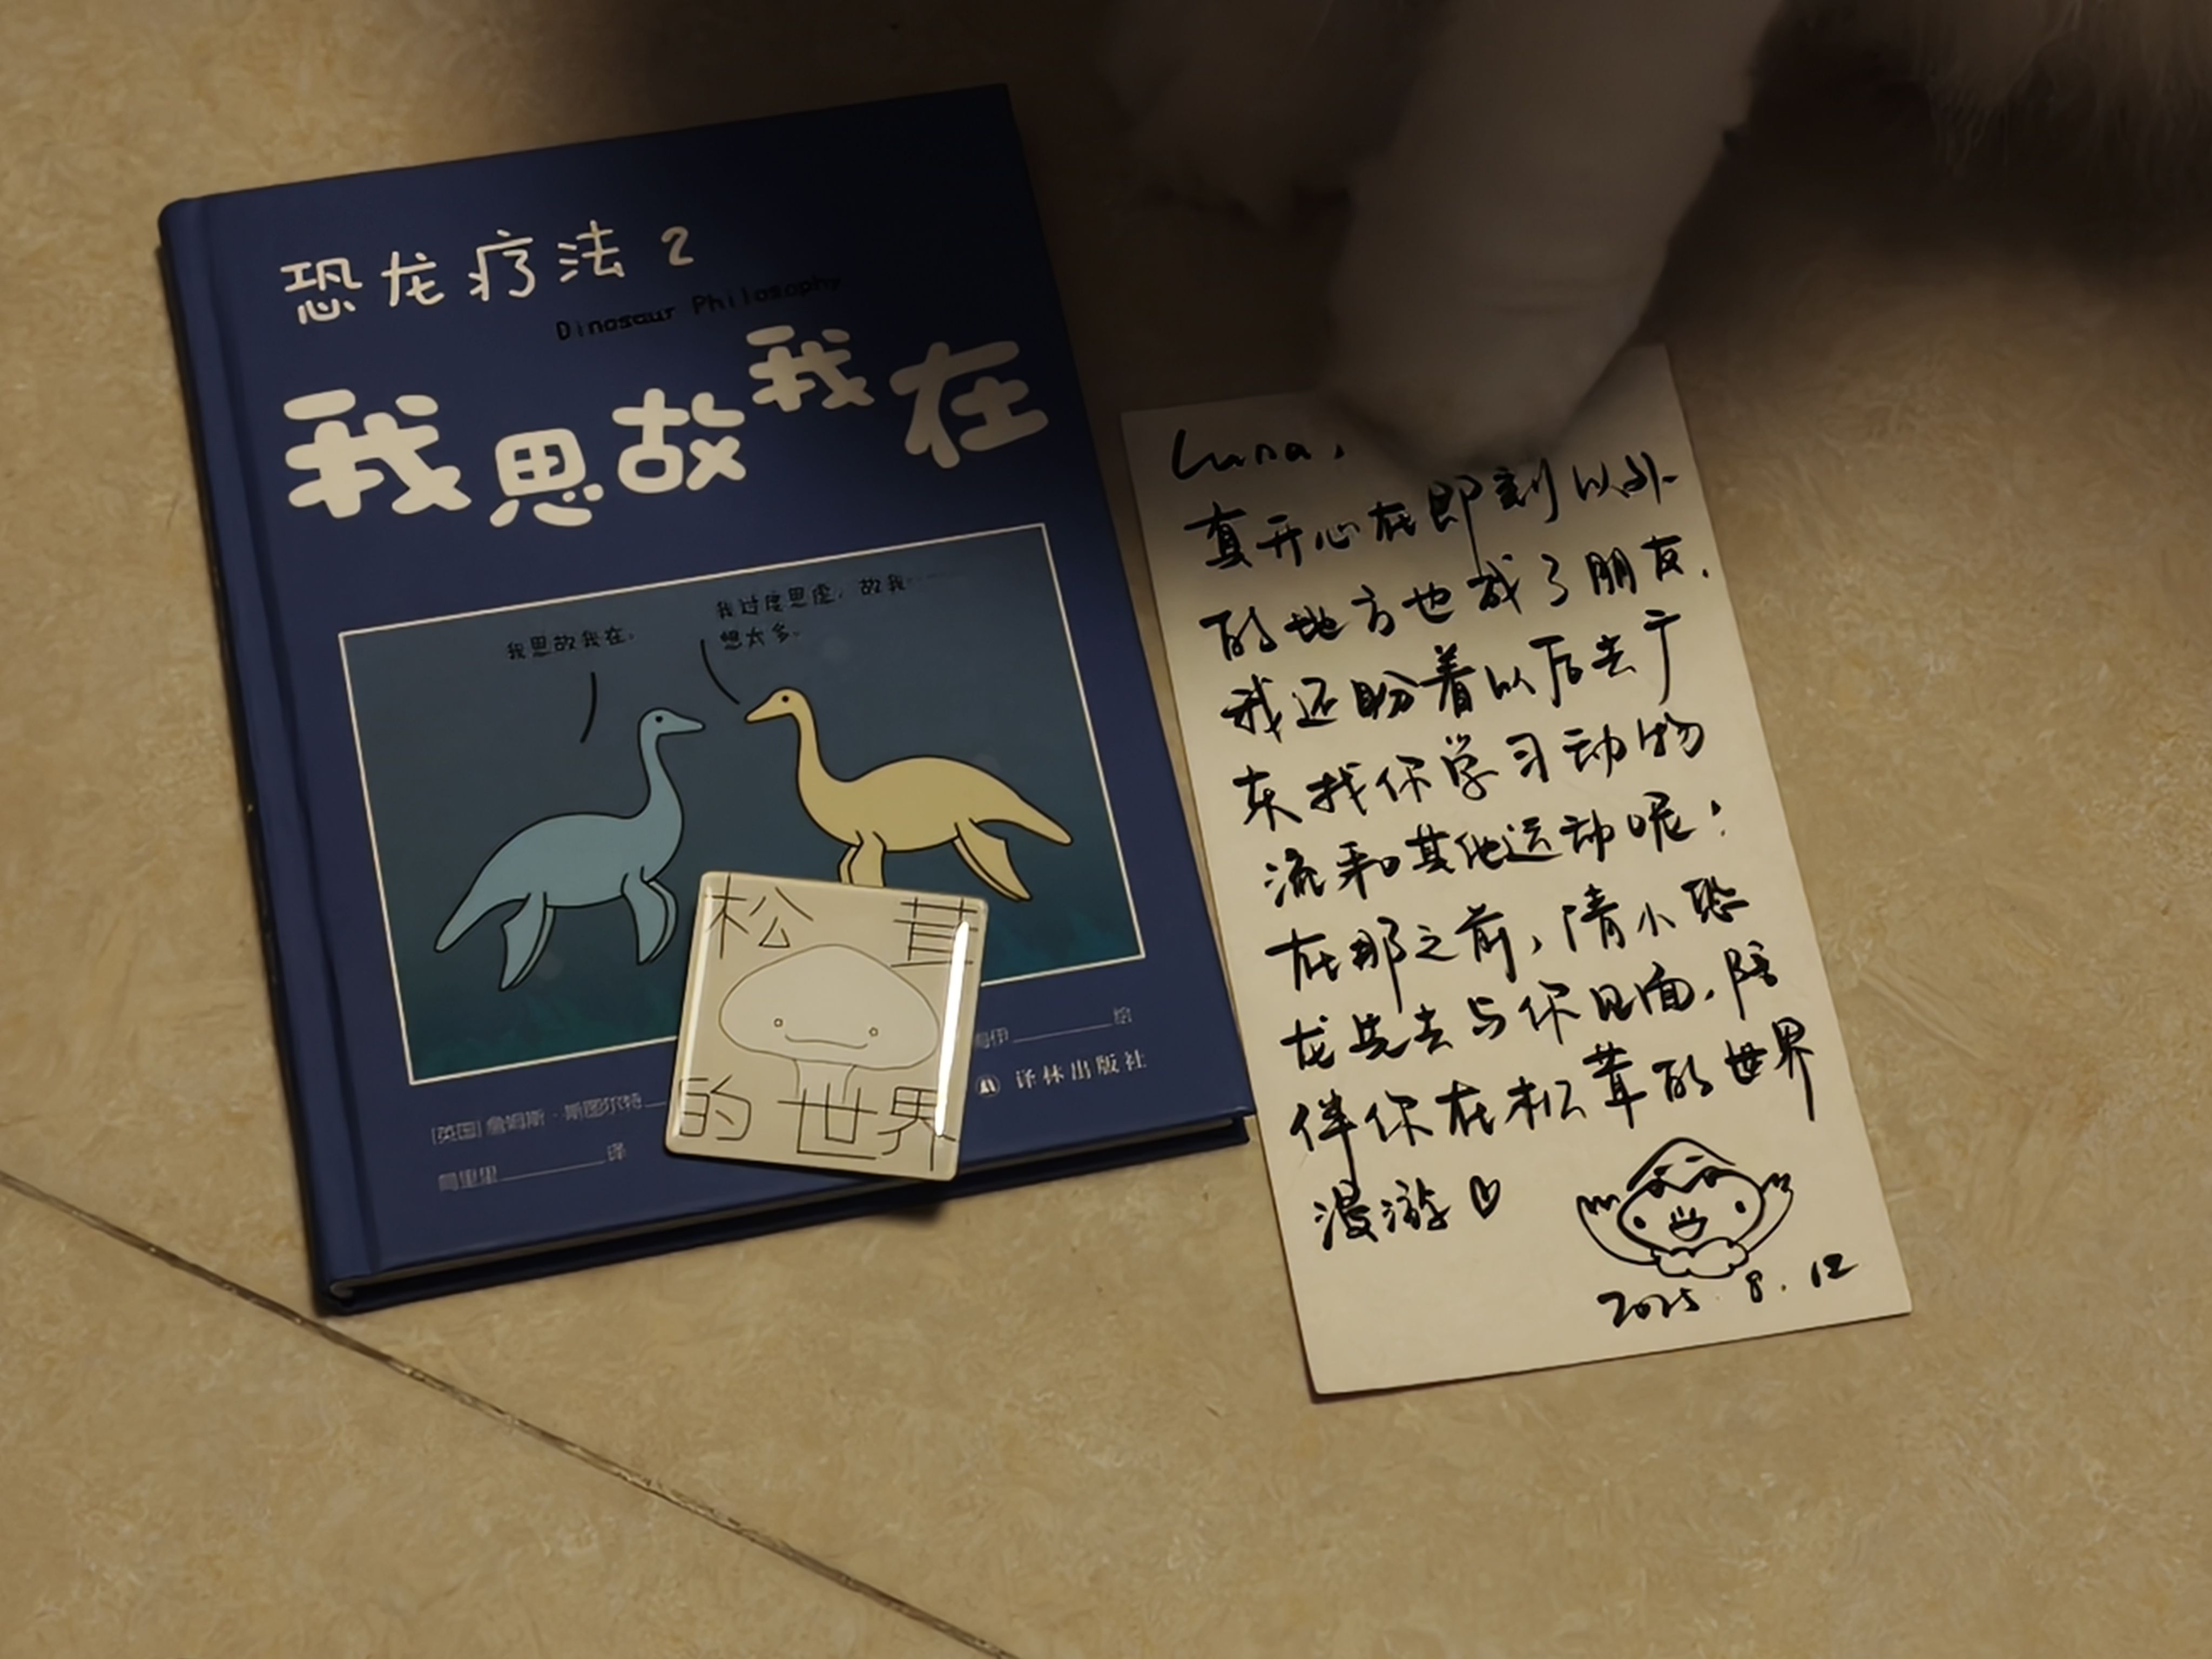 恐龙疗法 2
Dinosaur Philosophy
我思故我在
我思故我在。
我过度思虑，故我……
想太多。
[英国] 詹姆斯·斯图尔特
绘
译林出版社
译
松茸
的世界
Luna,
真开心在即刻以外
的地方也成了朋友.
我还盼着以后去广
东找你学习动物
流和其他运动呢!
在那之前, 请小恐
龙先去与你见面, 陪
伴你在松茸的世界
漫游♡
2025.8.12